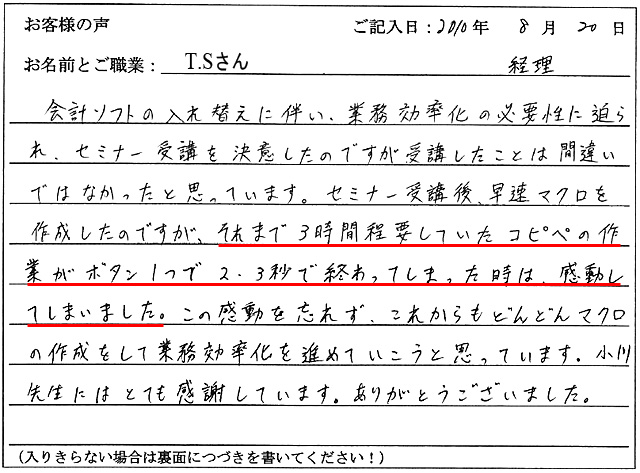 お客様の声 ご記入日：2010年 8 月 20 日
お名前とご職業： T.Sさん 経理
会計ソフトの入れ替えに伴い、業務効率化の必要性に迫ら
れ、セミナー受講を決意したのですが受講したことは間違い
ではなかったと思っています。セミナー受講後、早速マクロを
作成したのですが、それまで3時間程要していたコピペの作
業がボタン1つで2・3秒で終わってしまった時は、感動し
てしまいました。この感動を忘れず、これからもどんどんマクロ
の作成をして業務効率化を進めていこうと思っています。小川
先生にはとても感謝しています。ありがとうございました。
（入りきらない場合は裏面につづきを書いてください！）